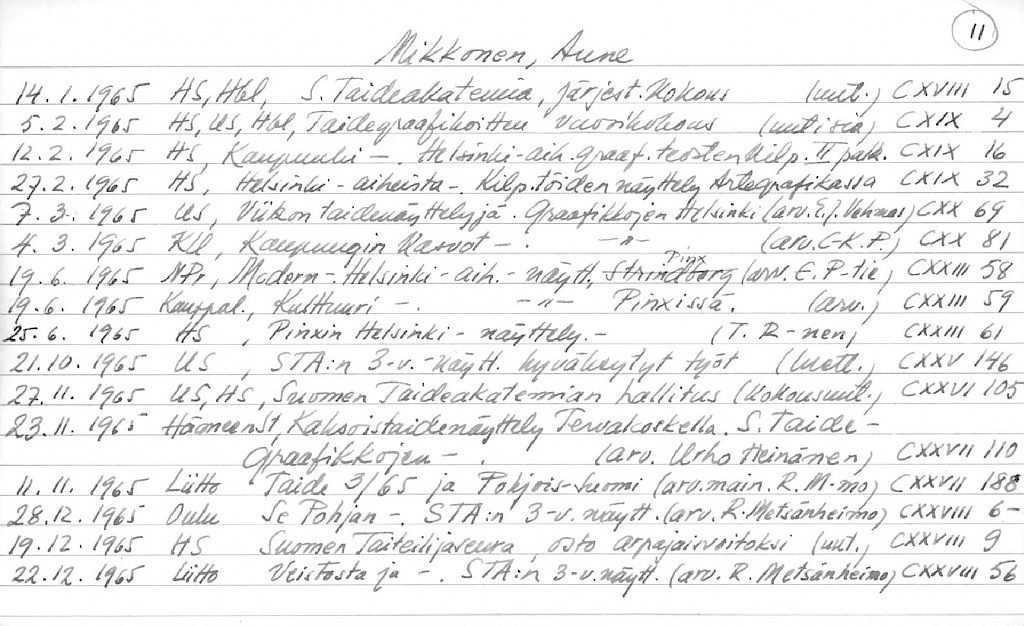 11
Mikkonen, Aune
14.1.1965 HS, Hbl, S. Taideakatemia, järjest. Kokous (uut.) CXVIII 15
5.2.1965 HS, US, Hbl, Taidegraafikoitten vuosikokous (uutisia) CXIX 4
12.2.1965 HS, Kaupunki -. Helsinki-aih. graaf. teosten kilp. II palk. CXIX 16
27.2.1965 HS, Helsinki-aiheista -. Kilp. töiden näyttely Artegrafikassa CXIX 32
7.3.1965 US, Viikon taidenäyttelyjä. Graafikkojen Helsinki (arv. E.J. Vehmas) CXX 69
4.3.1965 KU, Kaupungin Kasvot -. -"- (arv. C-K.P.) CXX 81
19.6.1965 NPr, Modern - Helsinki-aih. - näytt. Strindberg Pinx (arv. E. P-tie) CXXIII 58
19.6.1965 Kauppal., Kulttuuri -. -"- Pinxissä. (arv.) CXXIII 59
25.6.1965 HS, Pinxin Helsinki-näyttely. - (T. R-nen) CXXIII 61
21.10.1965 US, STA:n 3-v.-näytt. hyväksytyt työt (luett.) CXXV 146
27.11.1965 US, HS, Suomen Taideakatemian hallitus (Kokousuut.) CXXVI 105
23.11.1965 HämeenSt, Kaksoistaidenäyttely Tervakoskella. S. Taide-
graafikkojen -. (arv. Urho Heinänen) CXXVII 110
11.11.1965 Liitto Taide 3/65 ja Pohjois-Suomi (arv. main. R. M-mo) CXXVII 188
28.12.1965 Oulu Se Pohjan -. STA:n 3-v. näytt. (arv. R. Metsänheimo) CXXVIII 6-
19.12.1965 HS Suomen Taiteilijaseura, osto arpajaisvoitoksi (uut.) CXXVIII 9
22.12.1965 Liitto Veistosta ja -. STA:n 3-v. näytt. (arv. R. Metsänheimo) CXXVIII 56